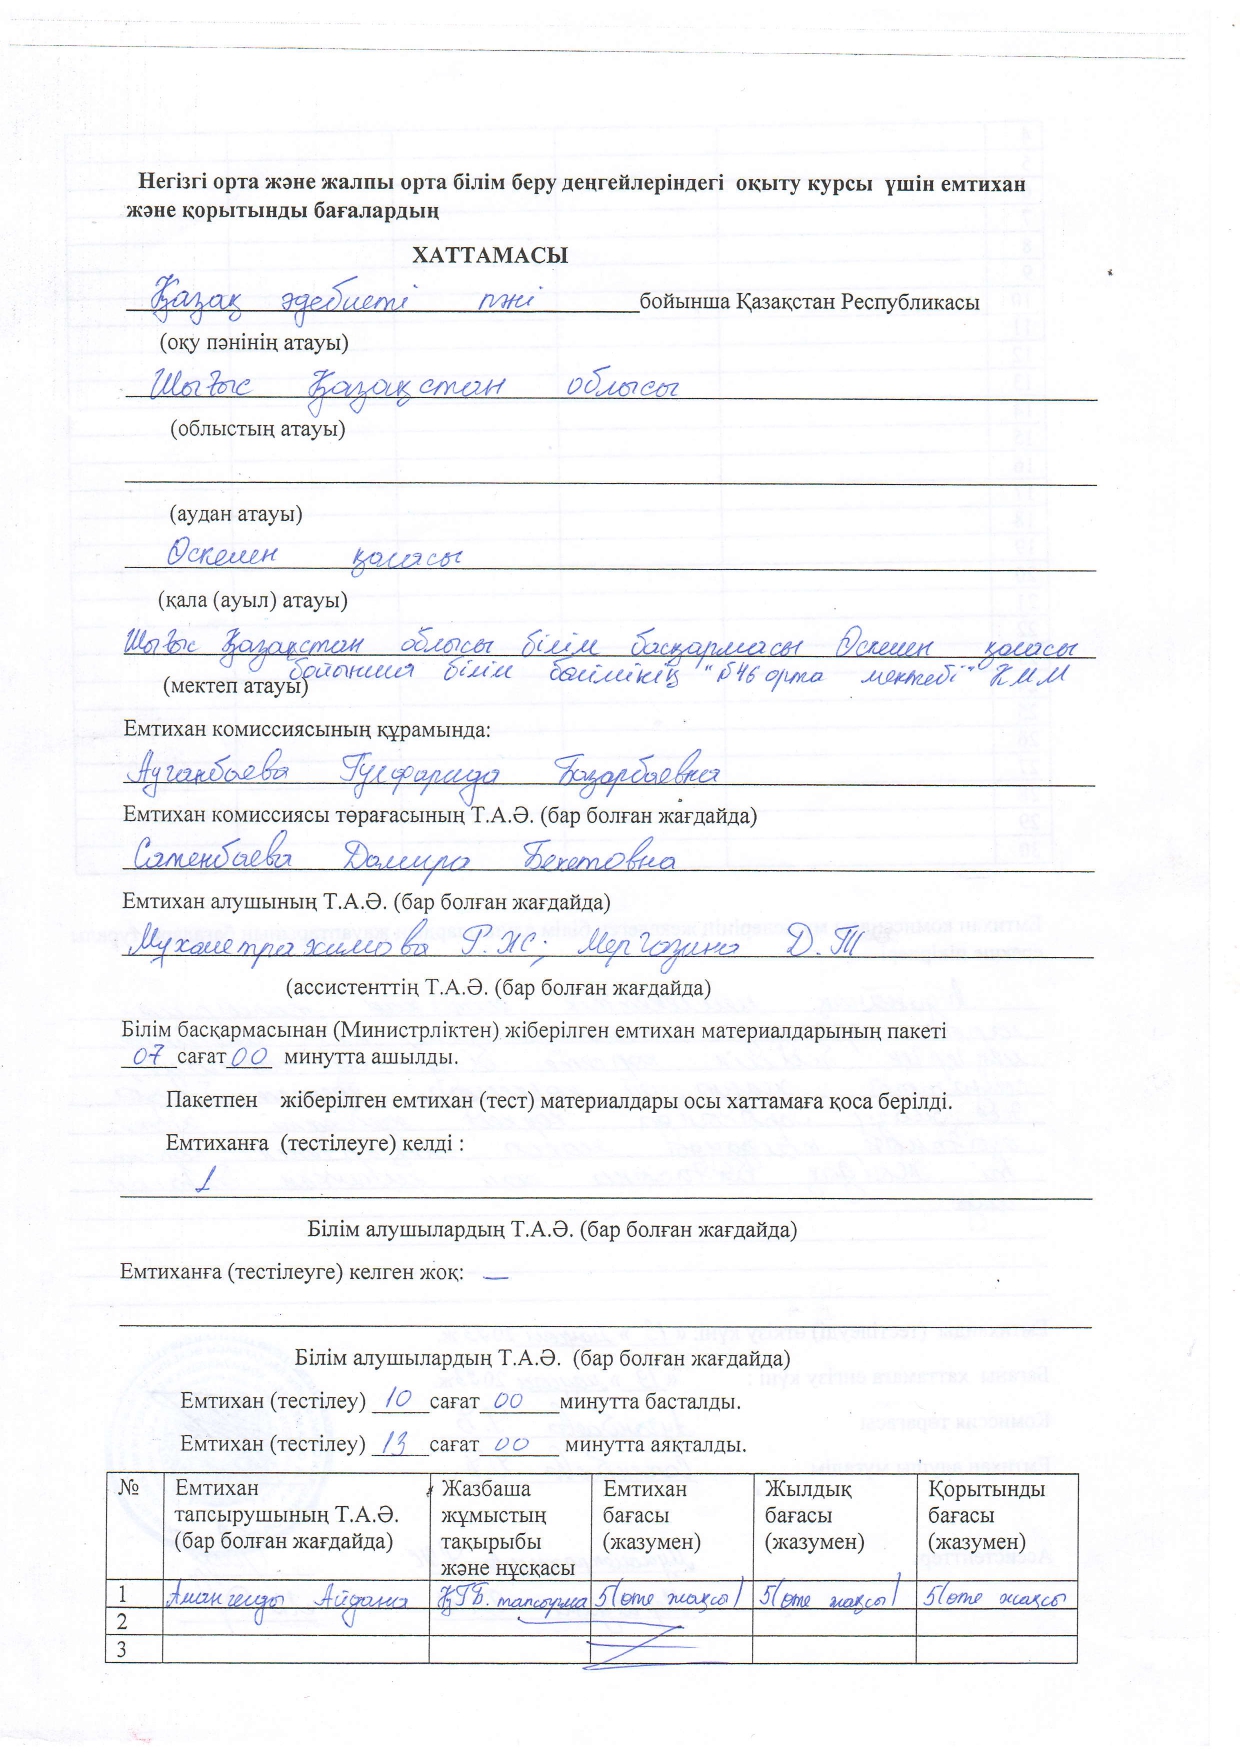 Негізгі орта және жалпы орта білім беру деңгейлеріндегі оқыту курсы үшін емтихан
және қорытынды бағалардың
ХАТТАМАСЫ
Қазақ әдебиеті пәні бойынша Қазақстан Республикасы
(оқу пәнінің атауы)
Шығыс Қазақстан облысы
(облыстың атауы)
(аудан атауы)
Өскемен қаласы
(қала (ауыл) атауы)
Шығыс Қазақстан облысы білім басқармасы Өскемен қаласы
бойынша білім бөлімінің "№46 орта мектебі" КММ
(мектеп атауы)
Емтихан комиссиясының құрамында:
Ауганбаева Гулфарида Базарбаевна
Емтихан комиссиясы төрағасының Т.А.Ә. (бар болған жағдайда)
Сатенбаева Дамира Бекетовна
Емтихан алушының Т.А.Ә. (бар болған жағдайда)
Мухаметрахимова Р.Ж; Мергазина Д.Т
(ассистенттің Т.А.Ә. (бар болған жағдайда)
Білім басқармасынан (Министрліктен) жіберілген емтихан материалдарының пакеті
07 сағат 00 минутта ашылды.
Пакетпен жіберілген емтихан (тест) материалдары осы хаттамаға қоса берілді.
Емтиханға (тестілеуге) келді :
1
Білім алушылардың Т.А.Ә. (бар болған жағдайда)
Емтиханға (тестілеуге) келген жоқ: —
Білім алушылардың Т.А.Ә. (бар болған жағдайда)
Емтихан (тестілеу) 10 сағат 00 минутта басталды.
Емтихан (тестілеу) 13 сағат 00 минутта аяқталды.
№ Емтихан тапсырушының Т.А.Ә. (бар болған жағдайда) Жазбаша жұмыстың тақырыбы және нұсқасы Емтихан бағасы (жазумен) Жылдық бағасы (жазумен) Қорытынды бағасы (жазумен)
1 Амангелді Айдана ҚГБ. тапсырма 5(өте жақсы) 5(өте жақсы) 5(өте жақсы
2
3